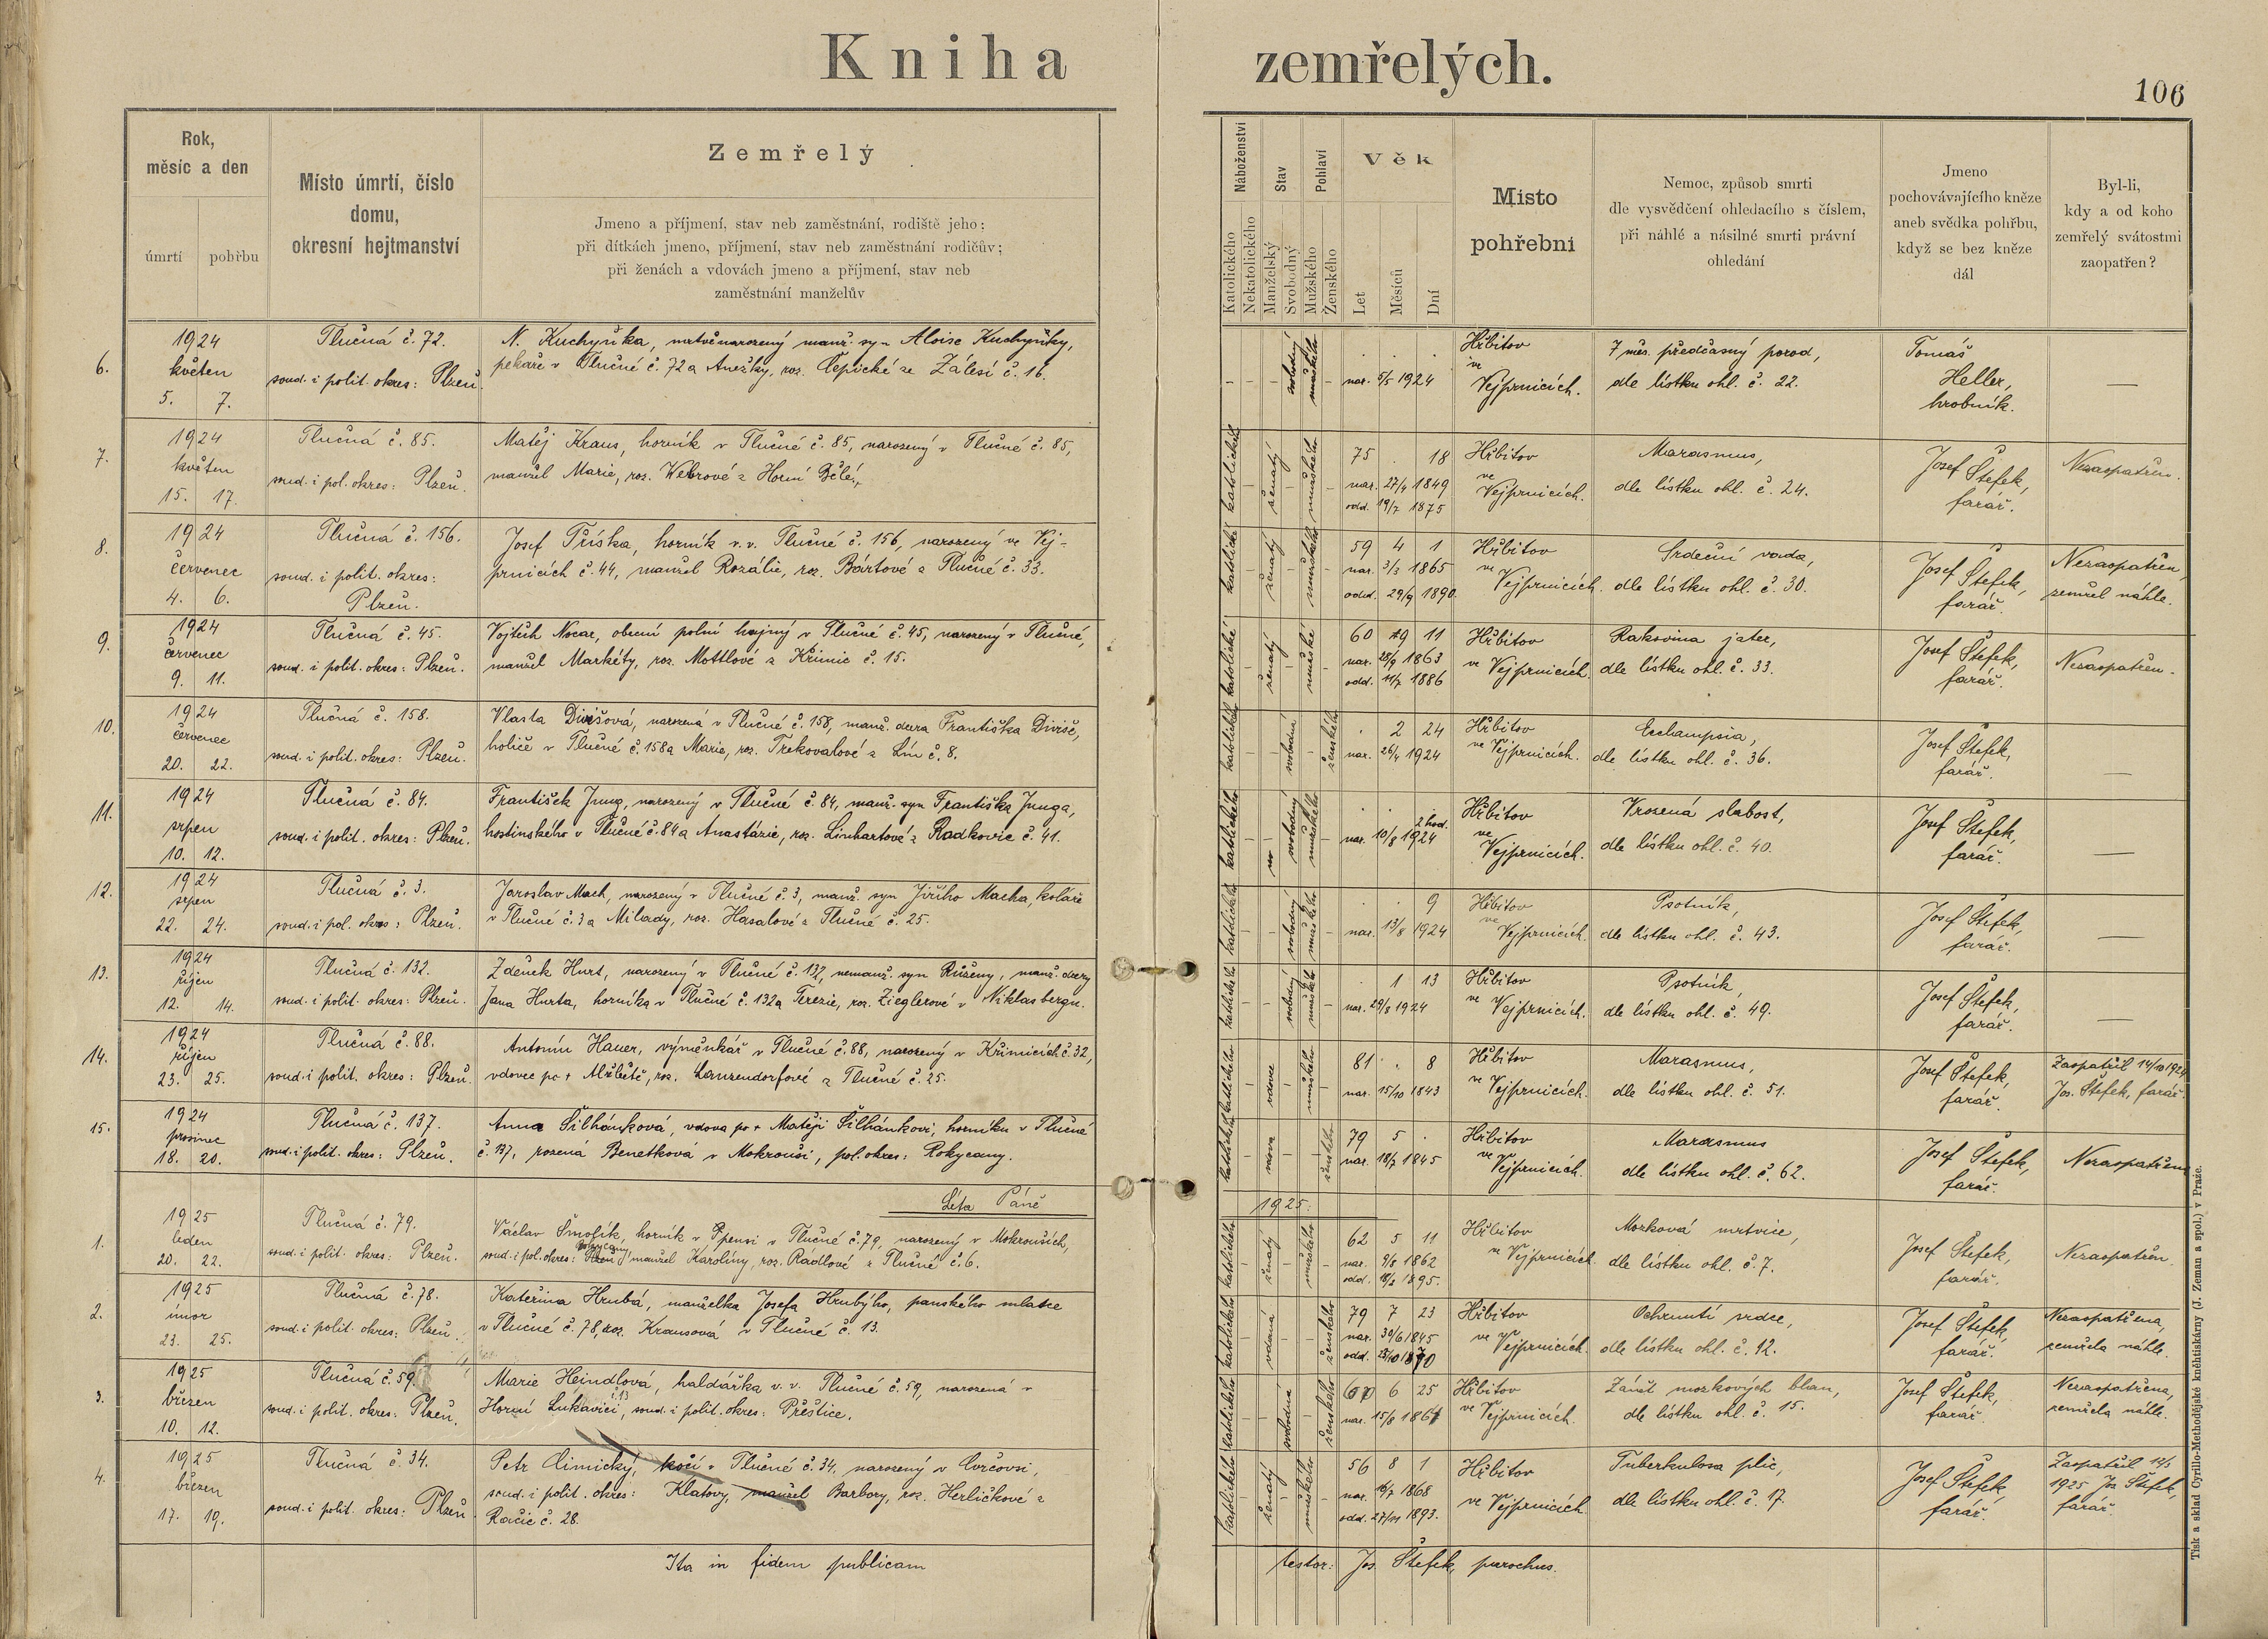 Kniha zemřelých.
106
Rok,
měsíc a den
úmrtí
pohřbu
Místo úmrtí, číslo
domu,
okresní hejtmanství
Zemřelý
Jmeno a příjmení, stav neb zaměstnání, rodiště jeho;
při dítkách jmeno, příjmení, stav neb zaměstnání rodičův;
při ženách a vdovách jmeno a příjmení, stav neb
zaměstnání manželův
Náboženství
Katolického
Nekatolického
Stav
Manželský
Svobodný
Pohlaví
Mužského
Ženského
Věk
Let
Měsíců
Dní
Místo
pohřební
Nemoc, způsob smrti
dle vysvědčení ohledacího s číslem,
při náhlé a násilné smrti právní
ohledání
Jmeno
pochovávajícího kněze
aneb svědka pohřbu,
když se bez kněze
dál
Byl-li,
kdy a od koho
zemřelý svátostmi
zaopatřen?
6.
1924
květen
5. 7.
Tlučná č. 72.
soud. i polit. okres: Plzeň.
N. Kuchyňka, mrtvěnarozený manž. syn Aloise Kuchyňky,
pekaře v Tlučné č. 72 a Anežky, roz. Čepické ze Zálesí č. 16.
svobodný
mužského
nar. 5/5 1924
Hřbitov
ve
Vejprnicích.
7 měs. předčasný porod,
dle lístku ohl. č. 22.
Tomáš
Heller,
hrobník.
—
7.
1924
květen
15. 17.
Tlučná č. 85.
soud. i pol. okres: Plzeň.
Matěj Kraus, horník v Tlučné č. 85, narozený v Tlučné č. 85,
manžel Marie, roz. Webrové z Horní Bělé.
katolického
ženatý
mužského
75 . 18
nar. 27/4 1849
odd. 19/7 1875
Hřbitov
ve
Vejprnicích.
Marasmus,
dle lístku ohl. č. 24.
Josef Štefek,
farář.
Nezaopatřen.
8.
1924
červenec
4. 6.
Tlučná č. 156.
soud. i polit. okres:
Plzeň.
Josef Tříska, horník v. v. Tlučné č. 156, narozený ve Vej-
prnicích č. 44, manžel Rozálie, roz. Bártové z Tlučné č. 33.
katolické
ženatý
mužského
59 4 1
nar. 3/3 1865
odd. 29/9 1890.
Hřbitov
ve
Vejprnicích.
Srdeční vada,
dle lístku ohl. č. 30.
Josef Štefek,
farář.
Nezaopatřen,
zemřel náhle.
9.
1924
červenec
9. 11.
Tlučná č. 45.
soud. i polit. okres: Plzeň.
Vojtěch Nocar, obecní polní hajný v Tlučné č. 45, narozený v Tlučné,
manžel Markéty, roz. Mottlové z Křimic č. 15.
katolické
ženatý
mužské
60 9 11
nar. 28/9 1863
odd. 11/7 1886
Hřbitov
ve Vejprnicích.
Rakovina jater,
dle lístku ohl. č. 33.
Josef Štefek,
farář.
Nezaopatřen.
10.
1924
červenec
20. 22.
Tlučná č. 158.
soud. i polit. okres: Plzeň.
Vlasta Divišová, narozená v Tlučné č. 158, manž. dcera Františka Diviše,
holiče v Tlučné č. 158 a Marie, roz. Trekovalové z Lín č. 8.
katolického
svobodná
ženského
. 2 24
nar. 26/4 1924
Hřbitov
ve Vejprnicích.
Ecclampsia,
dle lístku ohl. č. 36.
Josef Štefek,
farář.
—
11.
1924
srpen
10. 12.
Tlučná č. 84.
soud. i polit. okres: Plzeň.
František Jung, narozený v Tlučné č. 84, manž. syn Františka Junga,
hostinského v Tlučné č. 84 a Anastázie, roz. Linhartové z Radkovic č. 41.
katolického
svobodný
mužského
2 hod.
nar. 10/8 1924
Hřbitov
ve
Vejprnicích.
Vrozená slabost,
dle lístku ohl. č. 40.
Josef Štefek,
farář.
—
12.
1924
srpen
22. 24.
Tlučná č. 3.
soud. i pol. okres: Plzeň.
Jaroslav Mach, narozený v Tlučné č. 3, manž. syn Jiřího Macha, koláře
v Tlučné č. 3 a Milady, roz. Hasalové z Tlučné č. 25.
katolického
svobodný
mužského
. . 9
nar. 13/8 1924
Hřbitov
ve
Vejprnicích.
Psotník,
dle lístku ohl. č. 43.
Josef Štefek,
farář.
—
13.
1924
říjen
12. 14.
Tlučná č. 132.
soud. i polit. okres: Plzeň.
Zdeněk Hurt, narozený v Tlučné č. 132, nemanž. syn Růženy, manž. dcery
Jana Hurta, horníka v Tlučné č. 132 a Terezie, roz. Zieglerové v Niklasbergu.
katolické
svobodný
mužského
. 1 13
nar. 29/8 1924
Hřbitov
ve Vejprnicích.
Psotník,
dle lístku ohl. č. 49.
Josef Štefek,
farář.
—
14.
1924
říjen
23. 25.
Tlučná č. 88.
soud. i polit. okres: Plzeň.
Antonín Hauer, výměnkář v Tlučné č. 88, narozený v Křimicích č. 32,
vdovec po + Alžbětě, roz. Lanzendorfové z Tlučné č. 25.
katolického
vdovec
mužského
81 . 8
nar. 15/10 1843
Hřbitov
ve Vejprnicích.
Marasmus,
dle lístku ohl. č. 51.
Josef Štefek,
farář.
Zaopatřil 14/10 1924
Jos. Štefek, farář.
15.
1924
prosinec
18. 20.
Tlučná č. 137.
soud. i polit. okres: Plzeň.
Anna Šilhánková, vdova po + Matěji Šilhánkovi, horníku v Tlučné
č. 137, rozená Benetková v Mokrouši, pol. okres: Rokycany.
katolické
vdova
ženského
79 5 .
nar. 18/7 1845
Hřbitov
ve
Vejprnicích.
Marasmus
dle lístku ohl. č. 62.
Josef Štefek,
farář.
Nezaopatřena
Léta Páně 1925:
1.
1925
leden
20. 22.
Tlučná č. 79.
soud. i polit. okres: Plzeň.
Václav Šmolík, horník v pensi v Tlučné č. 79, narozený v Mokrouších,
Rokycany
soud. i pol. okres: Plzeň, manžel Karolíny, roz. Rádlové z Tlučné č. 6.
katolického
ženatý
mužského
62 5 11
nar. 9/8 1862
odd. 18/2 1895.
Hřbitov
ve Vejprnicích.
Mozková mrtvice,
dle lístku ohl. č. 7.
Josef Štefek,
farář.
Nezaopatřen.
2.
1925
únor
23. 25.
Tlučná č. 78.
soud. i polit. okres: Plzeň.
Kateřina Hrubá, manželka Josefa Hrubýho, panského mlatce
v Tlučné č. 78, roz. Krausová v Tlučné č. 13.
katolického
vdaná
ženského
79 7 23
nar. 30/6 1845
odd. 25/10 1870
Hřbitov
ve Vejprnicích.
Ochrnutí srdce,
dle lístku ohl. č. 12.
Josef Štefek,
farář.
Nezaopatřena,
zemřela náhle.
3.
1925
březen
10. 12.
Tlučná č. 59.
soud. i polit. okres: Plzeň.
Marie Heindlová, haldářka v. v. Tlučné č. 59, narozená v
Horní Lukavici, soud. i polit. okres: Přeštice.
katolického
svobodná
ženského
6 25
nar. 15/8 1861
Hřbitov
ve Vejprnicích.
Zánět mozkových blan,
dle lístku ohl. č. 15.
Josef Štefek,
farář.
Nezaopatřena,
zemřela náhle.
4.
1925
březen
17. 19.
Tlučná č. 34.
soud. i polit. okres: Plzeň.
Petr Cimický, kočí v Tlučné č. 34, narozený v Cvrčovsi,
soud. i polit. okres: Klatovy, manžel Barbory, roz. Herličkové z
Račic č. 28.
katolického
ženatý
mužského
56 8 1
nar. 16/7 1868
odd. 27/11 1893.
Hřbitov
ve Vejprnicích.
Tuberkulosa plic,
dle lístku ohl. č. 17.
Josef Štefek,
farář.
Zaopatřil
1925 Jos. Štefek,
farář.
Ita in fidem publicam testor: Jos. Štefek, parochus.
Tisk a sklad Cyrillo-Methodějské knihtiskárny (J. Zeman a spol.) v Praze.